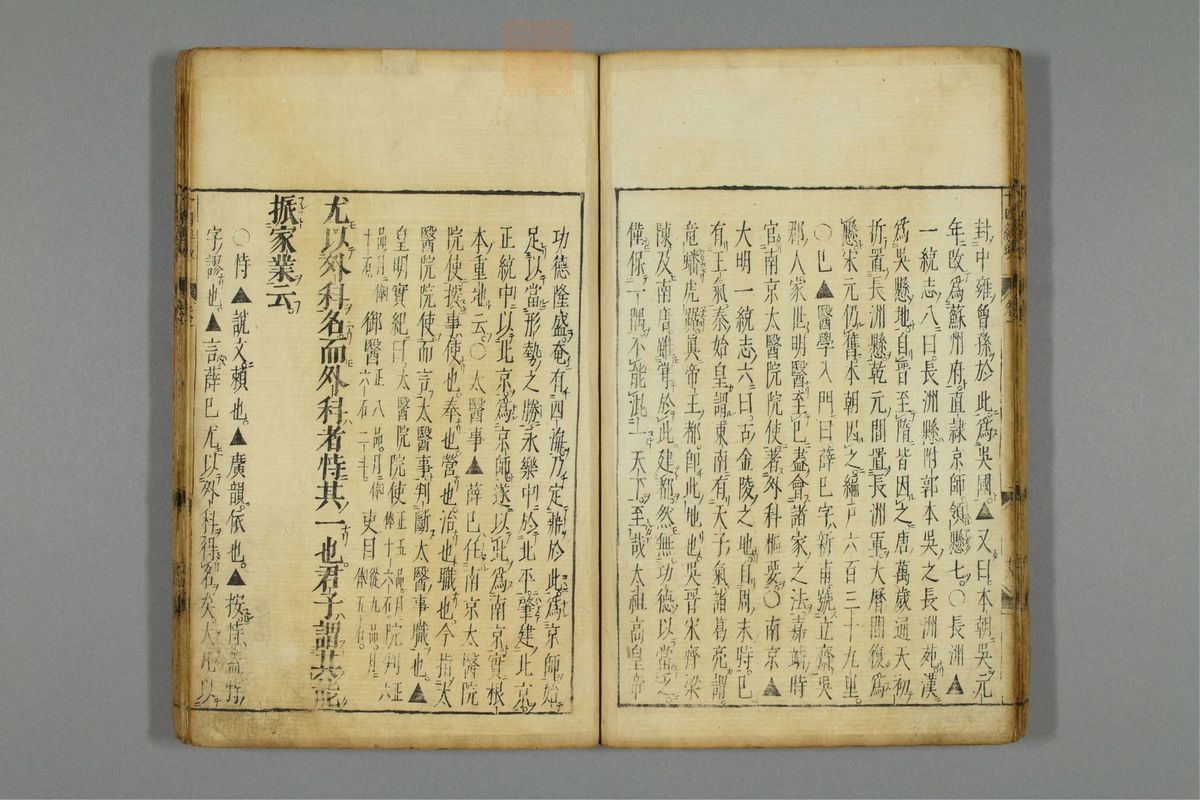 封中雍曾孫於此爲吳國▲又曰本朝吳元
年改爲蘇州府直隸京師領縣七○長洲▲
一統志八曰長洲縣附郭本吳之長洲苑漢
爲吳縣地自晉至隋皆因之唐萬歲通天初
析置長洲縣乾元間置長洲軍大曆間復爲
縣宋元仍舊本朝因之編戸六百三十九里
○巳▲醫學入門曰薛巳字新甫號立齋吳
郡人家世明醫至巳蓋會諸家之法嘉靖時
官南京太醫院院使著外科樞要○南京▲
大明一統志六曰古金陵之地自周末時巳
有王氣秦始皇謂東南有天子氣諸葛亮謂
竜蟠虎踞眞帝王都卽此地也吳晉宋齊梁
陳及南唐雖嘗於此建都然無功德以當之
偉保一隅不能混一天下至哉太祖高皇帝
功德隆盛奄有四海乃定鼎於此爲京師始
足以當形勢之勝永樂中於北平肇建北京
正統中以北京爲京師遂以此爲南京實根
本重地云○太醫事▲薛巳任南京太醫院
院使按事使也奉也營也治也職也今指太
醫院院使而言太醫事判斷太醫事職也▲
皇明實紀曰太醫院院使正五品月俸十六石院判正六
品月俸十石御醫正八品月俸六石二斗吏目從九品月俸五石
尤以外科名而外科者恃其一也君子謂其能
振家業云
○恃▲說文賴也▲廣韻依也▲按恃蓋特
字謬也▲言薛巳尤以外科得名矣大凡以